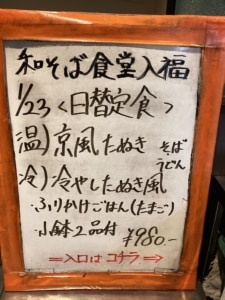 和そば食堂入福
1/23 <日替定食>
温) 京風たぬき そば うどん
冷) 冷やしたぬき風
・ふりかけごはん(たまご)
・小鉢2品付 ¥980.-
⇒入口は コチラ⇒